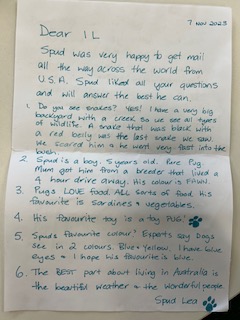 7 NOV 2023
Dear IL
Spud was very happy to get mail
all the way across the world from
U.S.A. Spud liked all your questions
and will answer the best he can.
1. Do you see snakes? YES! I have a very big
backyard with a creek so we see all types
of wildlife. A snake that was black with
a red belly was the last snake we saw.
We scared him & he went very fast into the
bush.
2. Spud is a boy. 5 years old. Pure Pug.
Mum got him from a breeder that lived a
4 hour drive away. His colour is FAWN.
3. Pugs LOVE food. ALL sorts of food. His
favourite is sardines & vegetables.
4. His favourite toy is a toy PUG!
5. Spuds favourite colour? Experts say Dogs
see in 2 colours. Blue & Yellow. I have blue
eyes & I hope his favourite is blue.
6. The BEST part about living in Australia is
the beautiful weather & the wonderful people.
Spud Lea